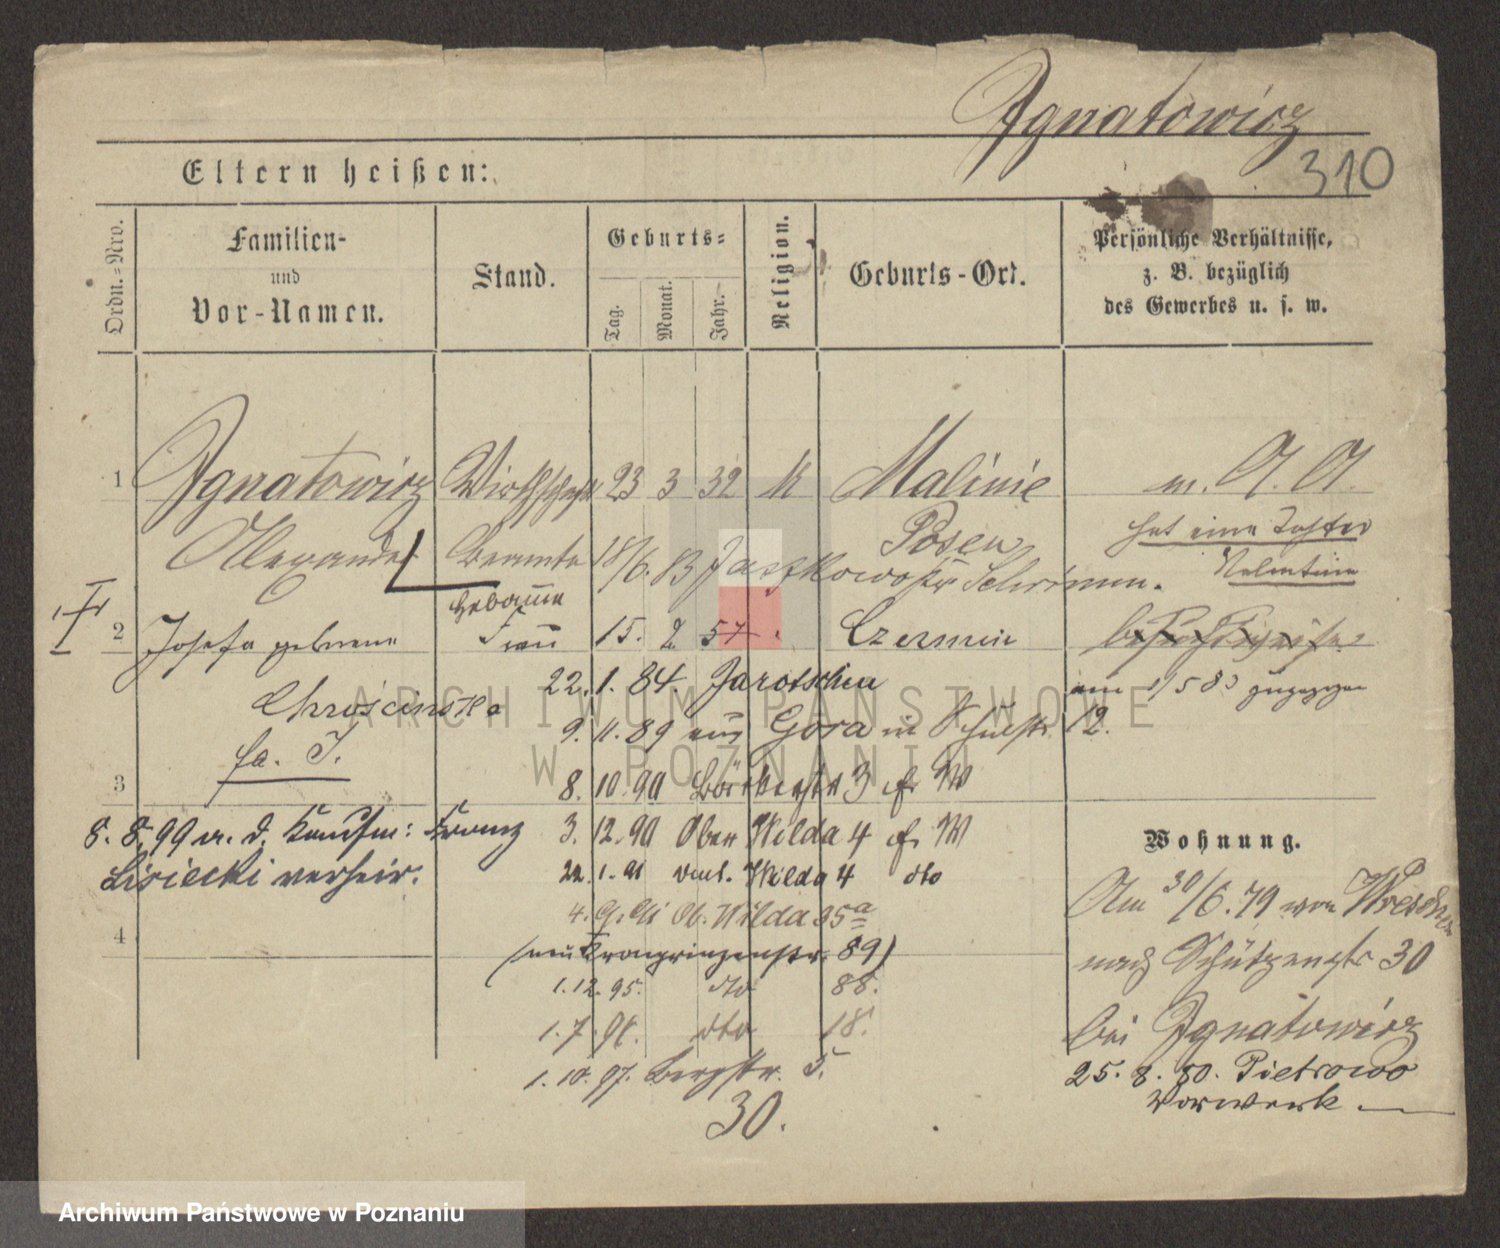 Ignatowicz
310
Eltern heißen:
Ordn.=Nro.
Familien-
und
Vor-Namen.
Stand.
Geburts=
Tag.
Monat.
Jahr.
Religion.
Geburts-Ort.
Persönliche Verhältnisse,
z. B. bezüglich
des Gewerbes u. s. w.
1 Ignatowicz Wirthschafts 23 3 32 k Malinie m. A. A.
Alexander Beamte Posen hat eine Tochter
18/6. 83 Schrimm. Valentine
2 Josefa geborene Frau 15. 2 57. Czermin
22. 1. 84. Jarotschin am 1/5 83 zugezogen
Chrościnska
9. 11. 89 aus Góra in Schulstr. 12.
fa. I.
3
8. 10. 90 Bäckerstr 3 fr W
8. 8. 99 m. d. Kaufm: Franz 3. 12. 90 Ober Wilda 4 fr. W
Lisiecki verheir. 22. 1. 91 Wilda 4 dto
Wohnung.
4. 9. 91 Ob. Wilda 35a
Am 30/6. 79 von Wreschen
4
(neu Kronprinzenstr. 89)
nach Schützenstr 30
1. 12. 95. dto 88.
1. 7. dto 18.
bei Ignatowicz
1. 10. 97. Bergstr. 5.
25. 8. 80. Pietrowo
Vorwerk.
30.
ARCHIWUM PAŃSTWOWE
W POZNANIU
Archiwum Państwowe w Poznaniu